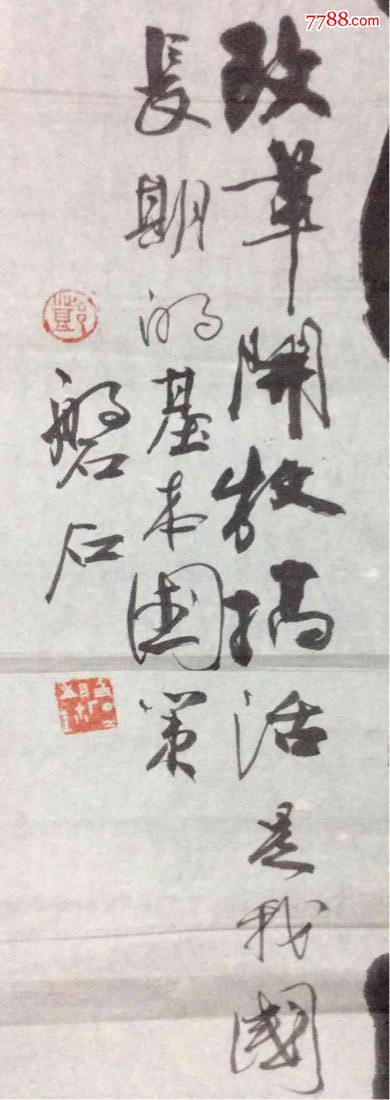 7788.com
改革開放搞活是我國
長期的基本國策
磐石